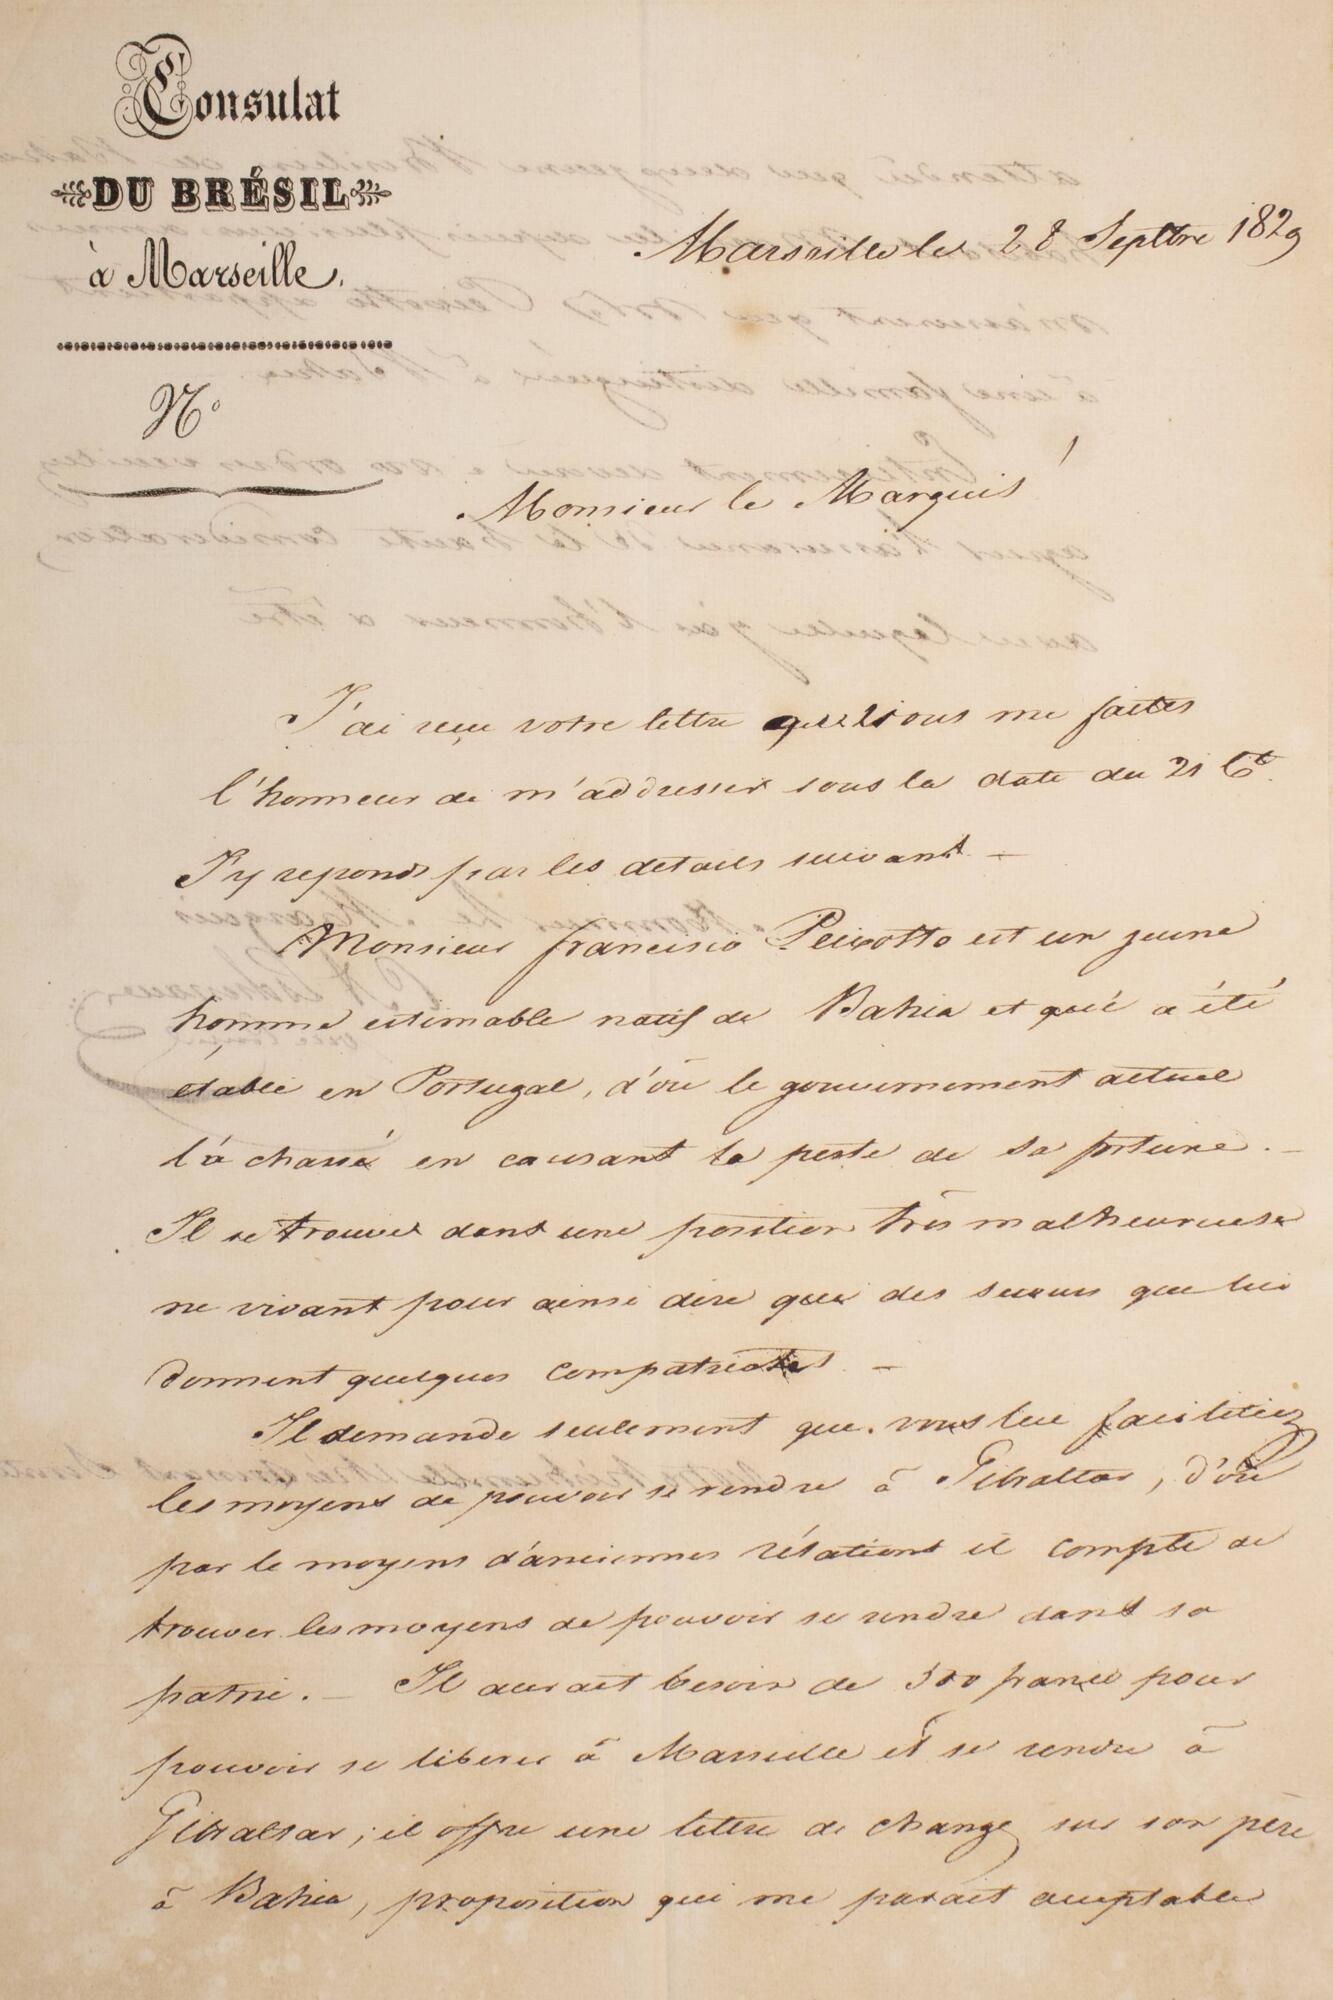 Consulat
DU BRÉSIL
à Marseille.
Nº
Marseille le 28 Septbre 1829
Monsieur le Marquis
J'ai reçu votre lettre que vous me faites
l'honneur de m'addresser sous la date du 21 Ct.
J'y reponds par les details suivant. —
Monsieur francisco Peixotto est un jeune
homme estimable natif de Bahia et qui a été
etabli en Portugal, d'où le gouvernement actuel
l'a chassé en causant la perte de sa fortune. —
Il se trouve dans une position très malheureuse
ne vivant pour ainsi dire que des secours que lui
donnent quelques compatriotes. —
Il demande seulement que vous lui facilitiez
les moyens de pouvoir se rendre à Gibraltar, d'où
par le moyens d'anciennes rélations il compte de
trouver les moyens de pouvoir se rendre dans sa
patrie. — Il aurait besoin de 500 francs pour
pouvoir se liberer à Marseille et se rendre à
Gibraltar; il offre une lettre de change sur son père
à Bahia, proposition qui me parait acceptable